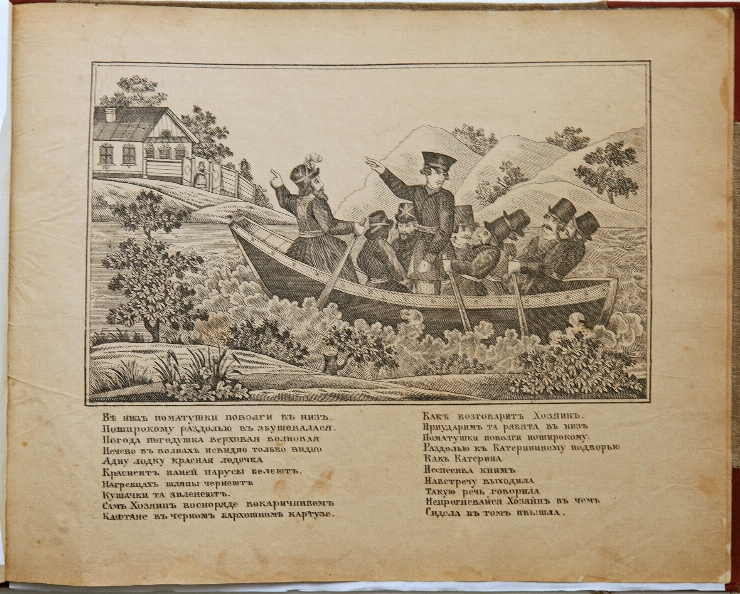 Въ низъ поматушки поволги въ низъ.
Поширокому раздолью въ збушевалася.
Погода погодушка верховая волновая
Нечево въ волнахъ невидно только видно
Адну лодку красная лодочка
Краснеитъ наней парусы белеютъ.
Нагребцахъ шляпы чернеютъ
Кушачки та
Самъ Хозяинъ воснаряде вокаричнивомъ
Кафтане въ черномъ бархошномъ картузе.
Какъ возговаритъ Хозяинъ.
Приударимъ та рябята въ низъ
Поматушки поволги поширокому.
Раздолью къ Катерининому подворью
Какъ Катерина
книмъ
Навстречу выходила
Такую речь говорила
Непрогневайся Хозяйнъ въ чемъ
Сидела въ томъ ивышла.